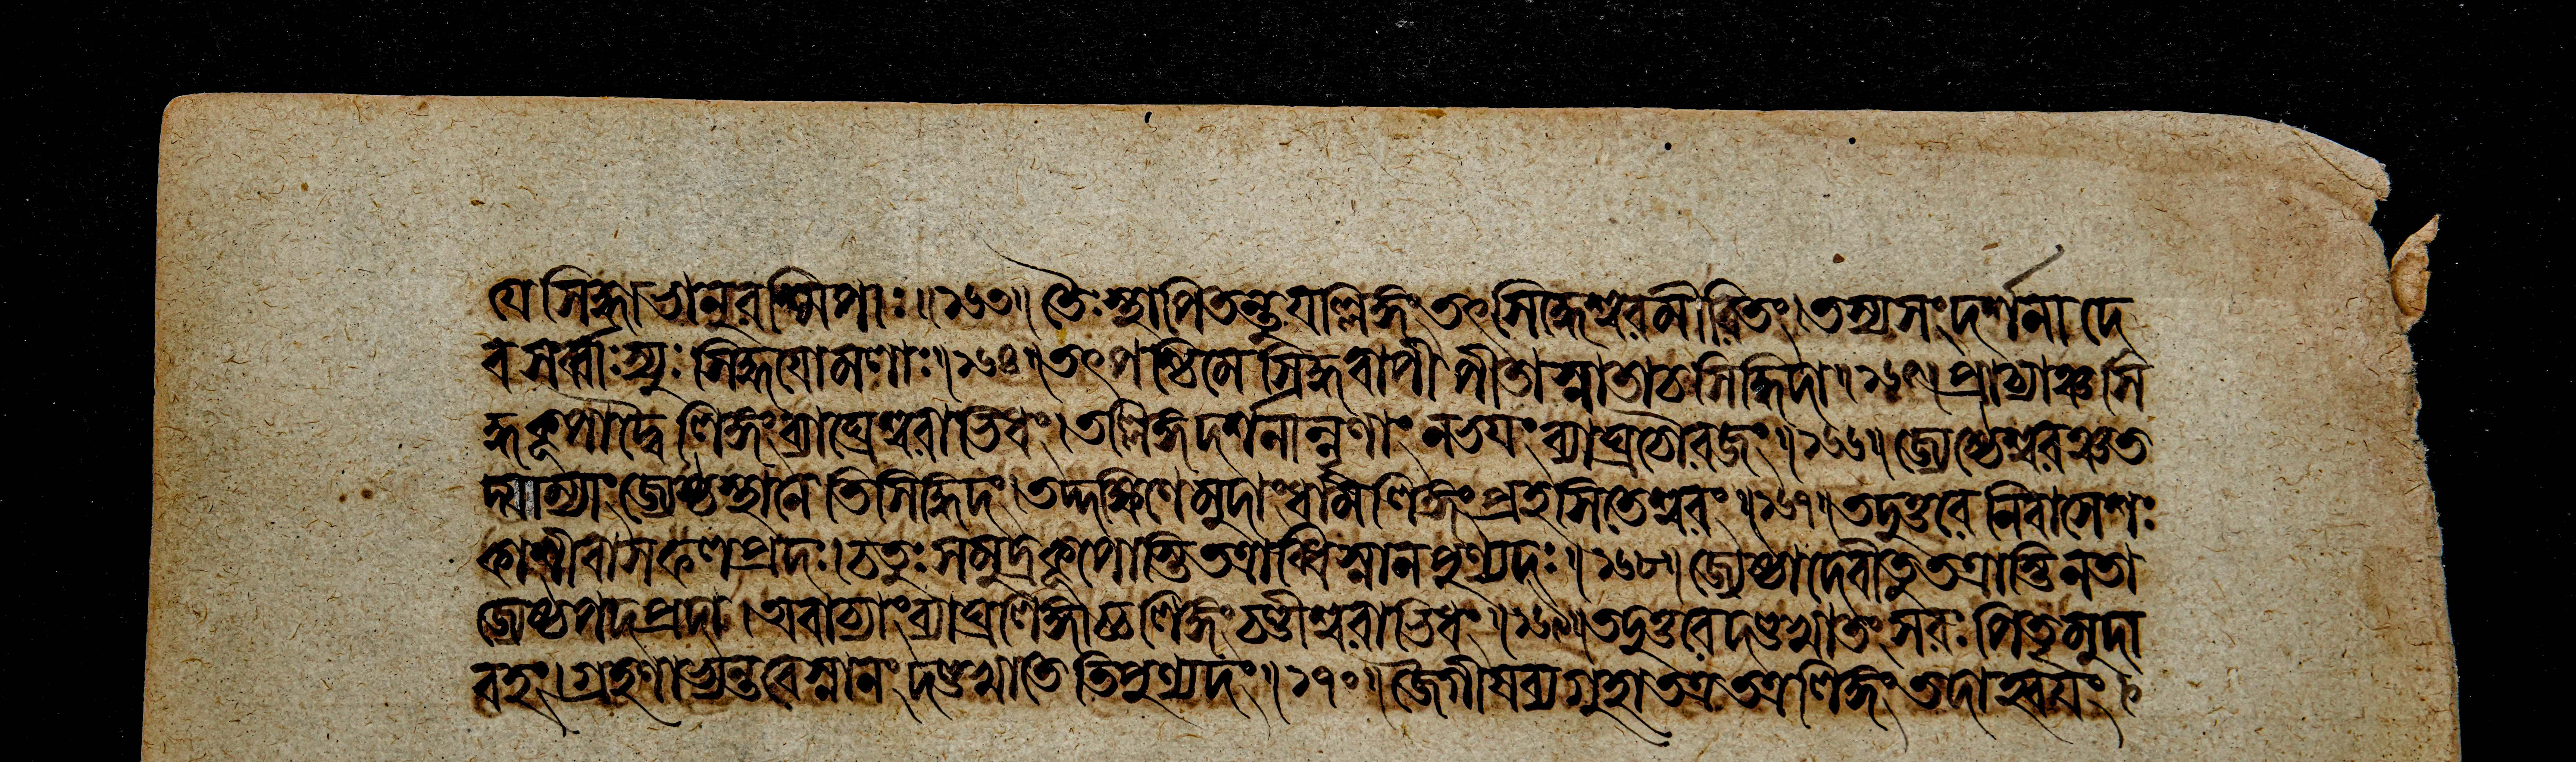 যে সিদ্ধা ভানুরশ্মিপাঃ॥১৬৩॥ তৈঃ স্থাপিতন্তু যল্লিঙ্গং তৎ সিদ্ধেশ্বরমীরিতং। তস্য সংদর্শনাদে
ব সর্ব্বাঃ স্যুঃ সিদ্ধযোমলাঃ॥১৬৪॥ তৎপশ্চিমে সিদ্ধবাপী পীতা স্নাতা চ সিদ্ধিদা॥১৬৫॥ প্রাচ্যাঞ্চ সি
দ্ধকূপাদ্বৈ লিঙ্গং ব্যাঘ্রেশ্বরাভিধং। তল্লিঙ্গদর্শনান্নৃণাং ন ভযং ব্যাঘ্রচৌরজং॥১৬৬॥ জ্যেষ্ঠেশ্বরঞ্চ ত
দ্যাম্যাং জ্যেষ্ঠস্থানেতিসিদ্ধিদং। তদ্দক্ষিণে মুদাং ধাম লিঙ্গং প্রহসিতেশ্বরং॥১৬৭॥ তদুত্তরে নিবাসেশঃ
কাশীবাসফলপ্রদঃ। চতুঃসমুদ্রকূপোস্তি তত্রাব্ধিস্নানপুণ্যদঃ॥১৬৮॥ জ্যেষ্ঠাদেবী তু তত্রাস্তি নতা
জ্যেষ্ঠপদপ্রদা। অবাচ্যাং ব্যাঘ্রলিঙ্গাচ্চ লিঙ্গং চণ্ডীশ্বরাভিধং॥১৬৯॥ তদুত্তরে দণ্ডখাতং সরঃ পিতৃমুদা
বহং। গ্রহণাভ্যন্তরে স্নানং দণ্ডখাতেতিপুণ্যদং॥১৭০॥ জৈগীষব্যগুহা তত্র তত্র লিঙ্গং তদাহ্বযং।